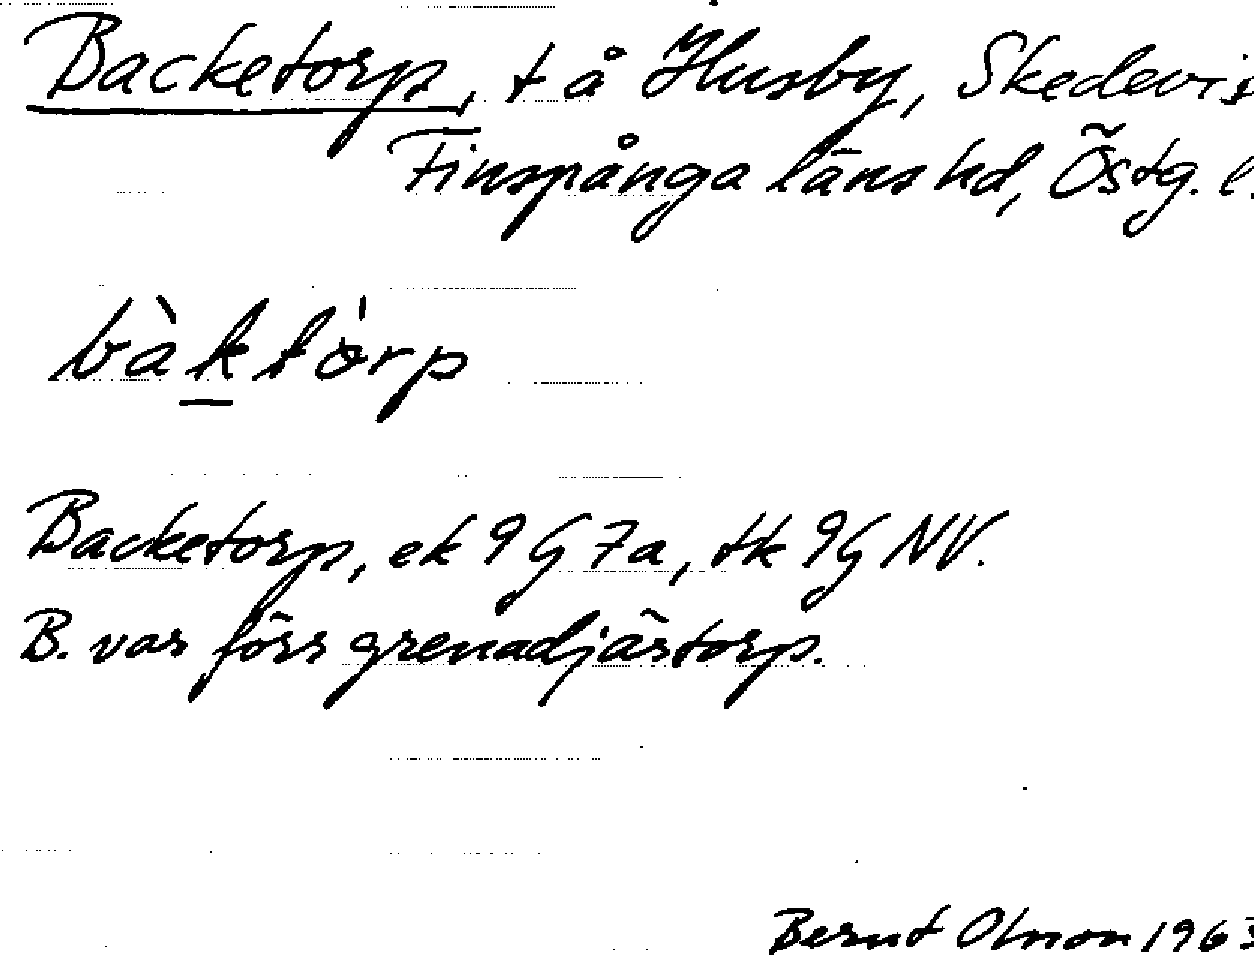 Backetorp, t å Husby, Skedevi s
Finspånga läns hd, Östg. l.
bàktòrp
Backetorp, ek 9G7a, tk 9G NV.
B. var förr grenadjärstorp.
Bernt Olsson 1963